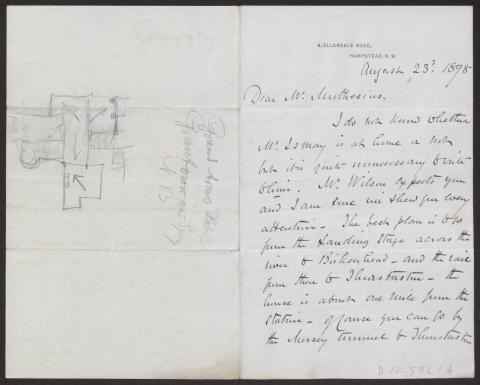 6, ELLERDALE ROAD,
HAMPSTEAD, N.W.
August 23d 1898
Dear Mr. Muthesius.
I do not know whether
Mr Ismay is at home or not
but it is quite unnecessary to write
to him. Mr. Wilson expects you
and I am sure will shew you every
attention - The best plan is to go
from the Landing Stage across the
river to Birkenhead - and take rail
from there to Thurstaston - the
house is about one mile from the
station - of course you can go by
the Mersey tunnel to Thurstaston
D 10,592 1 A
Grand Arms Hotel
N B